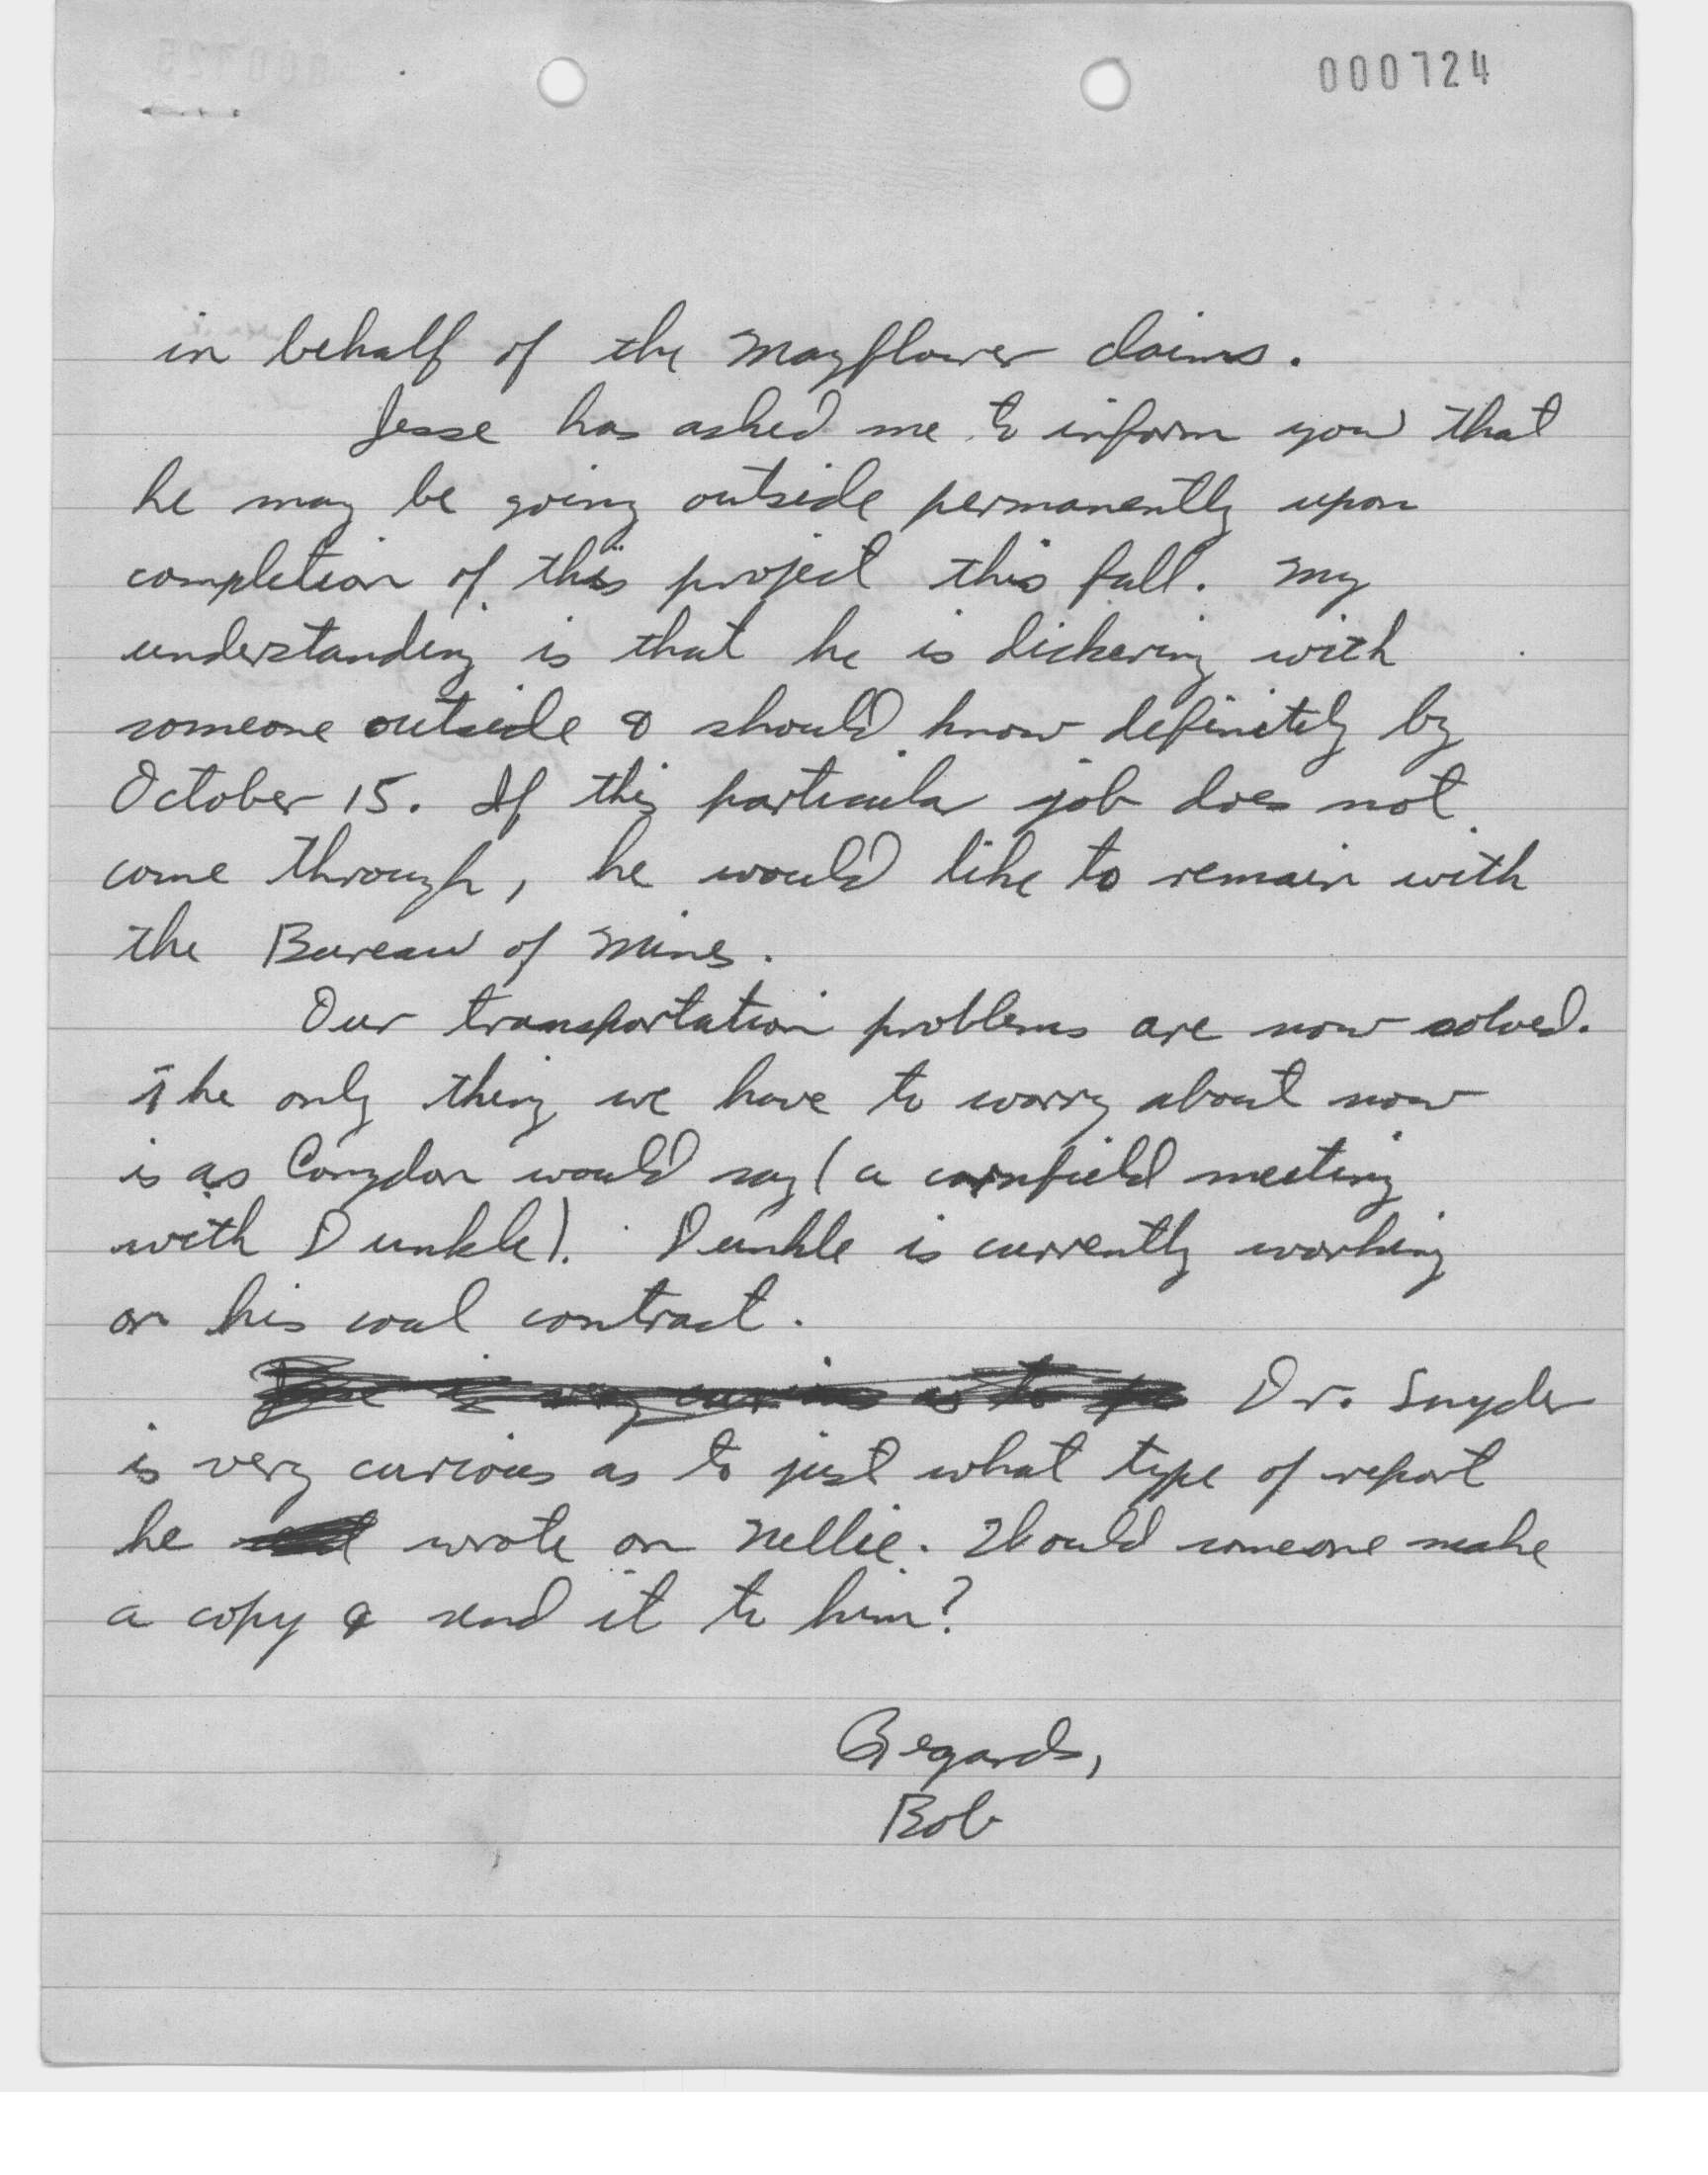 000724
in behalf of the Mayflower claims.
Jesse has asked me to inform you that
he may be going outside permanently upon
completion of this project this fall. My
understanding is that he is dickering with
someone outside & should know definitely by
October 15. If this particular job does not
come through, he would like to remain with
the Bureau of Mines.
Our transportation problems are now solved.
The only thing we have to worry about now
is as Congdon would say (a cornfield meeting
with Dunkle). Dunkle is currently working
on his coal contract.
Dr. Snyder
is very curious as to just what type of report
he wrote on Nellie. Would someone make
a copy & send it to him?
Regards,
Bob